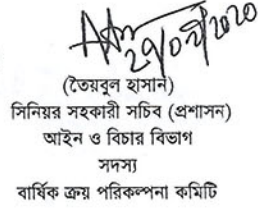 ২৭/০৮/২০২০
(তৈয়বুল হাসান)
সিনিয়র সহকারী সচিব (প্রশাসন)
আইন ও বিচার বিভাগ
সদস্য
বার্ষিক ক্রয় পরিকল্পনা কমিটি